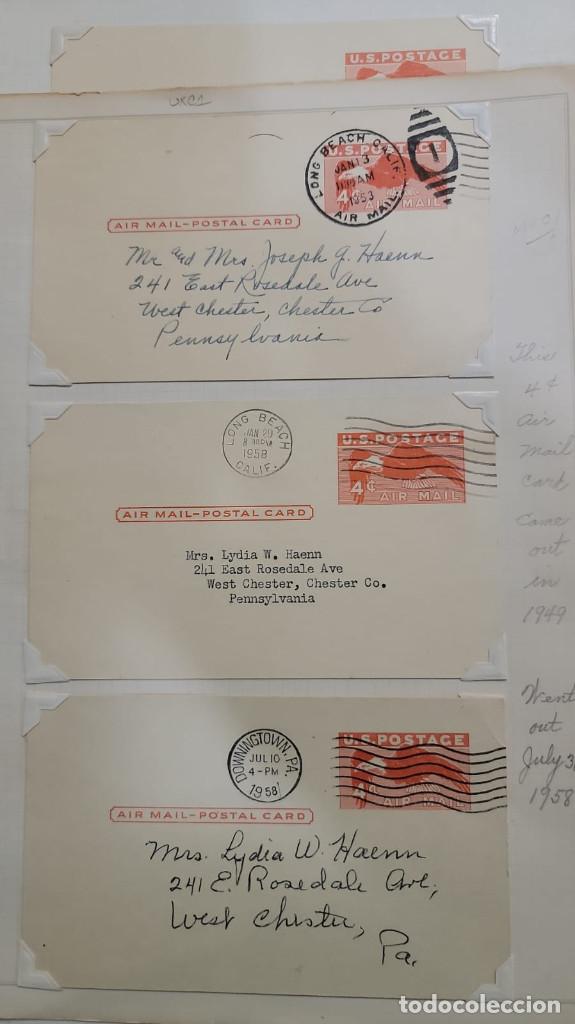 U.S. POSTAGE
UXC1
LONG BEACH CALIF.
JAN 13
AM
1953
AIR MAIL
U.S. POSTAGE
4¢ AIR MAIL
AIR MAIL–POSTAL CARD
Mr and Mrs. Joseph G. Haenn
241 East Rosedale Ave
West Chester, Chester Co
Pennsylvania
LONG BEACH
JAN 20
8 PM
1958
CALIF.
U.S. POSTAGE
4¢ AIR MAIL
AIR MAIL–POSTAL CARD
Mrs. Lydia W. Haenn
241 East Rosedale Ave
West Chester, Chester Co.
Pennsylvania
DOWNINGTOWN, PA.
JUL 10
4-PM
1958
U.S. POSTAGE
4¢ AIR MAIL
AIR MAIL–POSTAL CARD
Mrs. Lydia W. Haenn
241 E. Rosedale Ave,
West Chester,
Pa.
This
4¢
Air
Mail
card
came
out
in
1949
Went
out
July 3
1958
todocoleccion